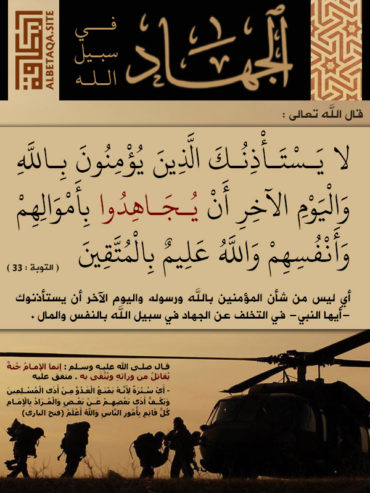 البطاقة
ALBETAQA.SITE
الجهاد
فـي
سبيل
الـلـه
قال الله تعالى :
لا يَـسْـتَـأْذِنُـكَ الَّذِينَ يُؤْمِنُونَ بِـاللَّهِ
وَالْيَوْمِ الآخِرِ أَنْ يُـجَـاهِـدُوا بِأَمْوَالِهِمْ
وَأَنْفُسِهِمْ وَاللَّهُ عَلِيمٌ بِالْمُتَّقِينَ
( التوبة : 33 )
أي ليس من شأن المؤمنين بالله ورسوله واليوم الآخر أن يستأذنوك
-أيها النبي- في التخلف عن الجهاد في سبيل الله بالنفس والمال .
قال صلى الله عليه وسلم : إنما الإمامُ جُنةٌ
يُقاتَلُ من ورائِه ويُتَّقى به . متفق عليه
- أَيْ سُتْرَةٌ لِأَنَّهُ يَمْنَعُ الْعَدُوَّ مِنْ أَذَى الْمُسْلِمِينَ
وَيَكُفُّ أَذَى بَعْضِهِمْ عَنْ بَعْضٍ وَالْمُرَادُ بِالْإِمَامِ
كُلُّ قَائِمٍ بِأُمُورِ النَّاسِ وَاللَّهُ أَعْلَمُ (فتح الباري)